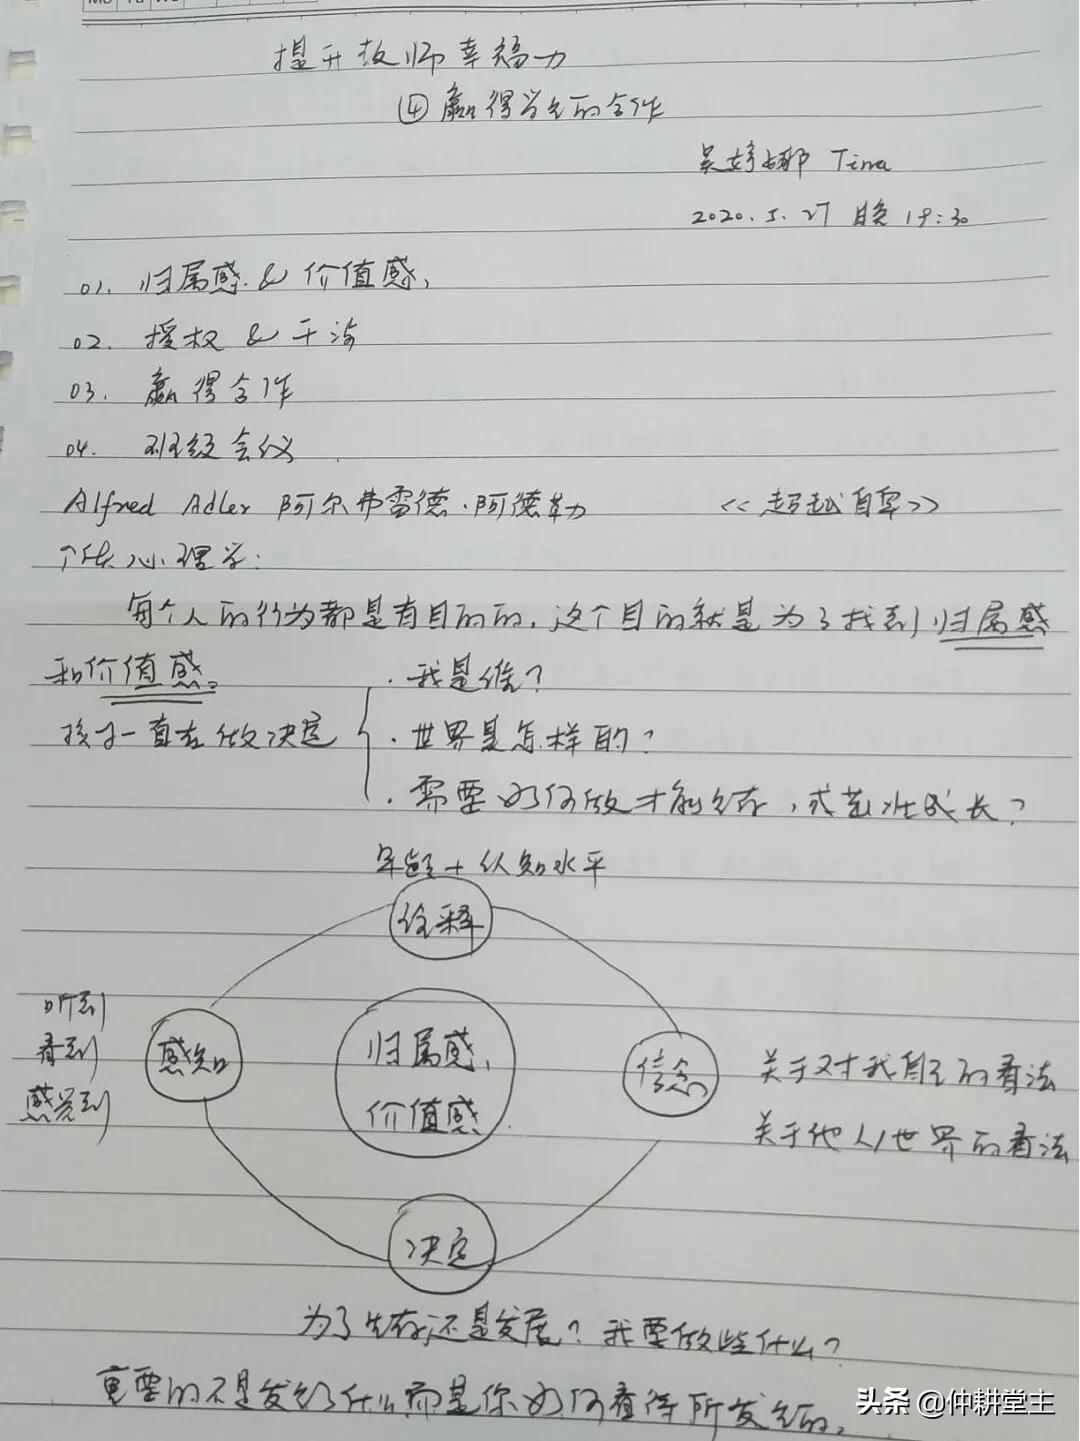 Mo Tu We
提升教师幸福力
④赢得学生的合作
吴婷娜 Tina
2020.5.27 晚19:30
01. 归属感 & 价值感、
02. 授权 & 干涉
03. 赢得合作
04. 班级会议
Alfred Adler 阿尔弗雷德·阿德勒 <<超越自卑>>
个体心理学:
每个人的行为都是有目的的,这个目的就是为了找到归属感
和价值感。
·我是谁?
孩子一直在做决定
·世界是怎样的?
·需要如何做才能生存,或茁壮成长?
年龄+认知水平
诠释
听到
看到
感觉到
感知
归属感、
价值感
信念
关于对我自己的看法
关于他人/世界的看法
决定
为了生存还是发展?我要做些什么?
重要的不是发生了什么而是你如何看待所发生的。
头条 @仲耕堂主